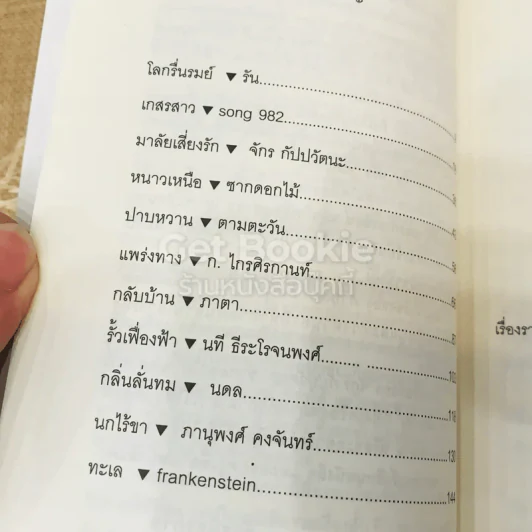 โลกรื่นรมย์ ▼ รัน..............................
เกสรสาว ▼ song 982..............................
มาลัยเสี่ยงรัก ▼ จักร กัปปวัตนะ..............................
หนาวเหนือ ▼ ซากดอกไม้..............................
ปาบหวาน ▼ ตามตะวัน..............................
แพร่งทาง ▼ ก. ไกรศิรกานท์..............................
กลับบ้าน ▼ ภาตา..............................
รั้วเฟื่องฟ้า ▼ นที ธีระโรจนพงศ์......... .................... 102
กลิ่นลั่นทม ▼ นดล.............................. 118
นกไร้ขา ▼ ภานุพงศ์ คงจันทร์.............................. 130
ทะเล ▼ frankenstein.............................. 144
Get Bookie
ร้านหนังสือบุคกี้